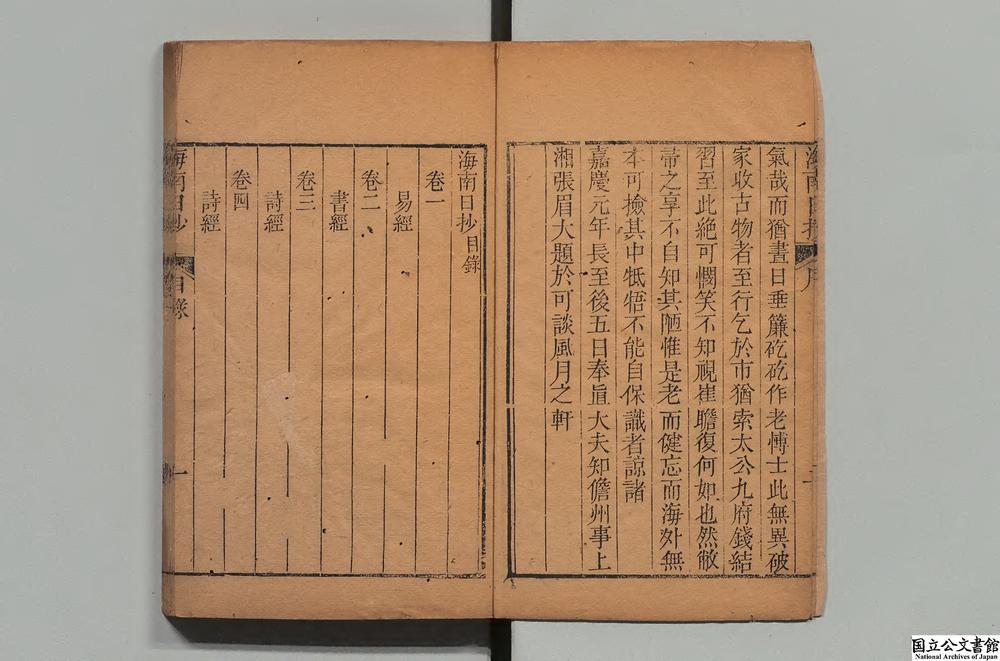 氣哉而猶晝日垂簾矻矻作老愽士此無異破
家收古物者至行乞於市猶索太公九府錢結
習至此絶可憫笑不知視崔瞻復何如也然敝
帚之享不自知其陋惟是老而健忘而海外無
本可撿其中牴牾不能自保識者諒諸
嘉慶元年長至後五日奉直大夫知儋州事上
湘張眉大題於可談風月之軒
海南日抄目錄
卷一
易經
卷二
書經
卷三
詩經
卷四
詩經
海南日抄 目錄 一
国立公文書館
National Archives of Japan